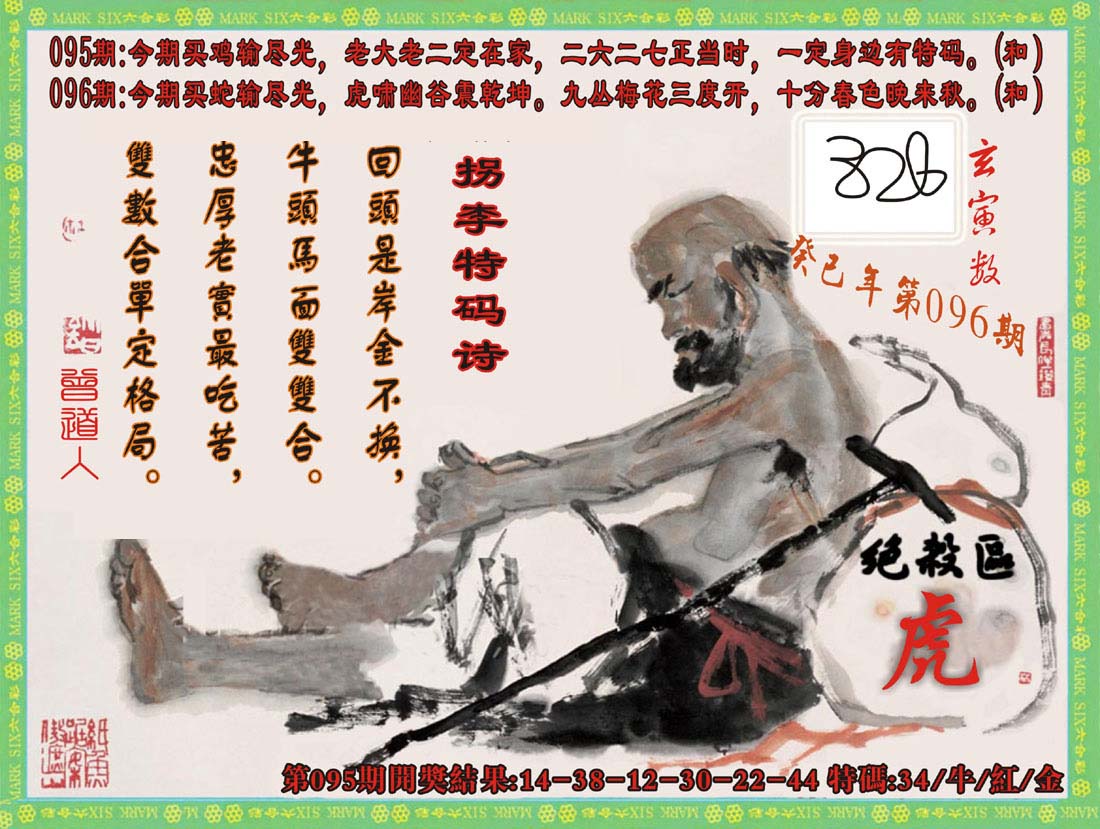 MARK SIX六合彩
095期:今期买鸡输尽光，老大老二定在家，二六二七正当时，一定身边有特码。(和)
096期:今期买蛇输尽光，虎啸幽谷震乾坤。九丛梅花三度开，十分春色晚来秋。(和)
326
玄寅数
癸巳年第096期
拐李特码诗
回頭是岸金不换，
牛頭馬面雙雙合。
忠厚老實最吃苦，
雙數合單定格局。
曾道人
绝殺區
虎
第095期開獎結果:14-38-12-30-22-44 特碼:34/牛/紅/金